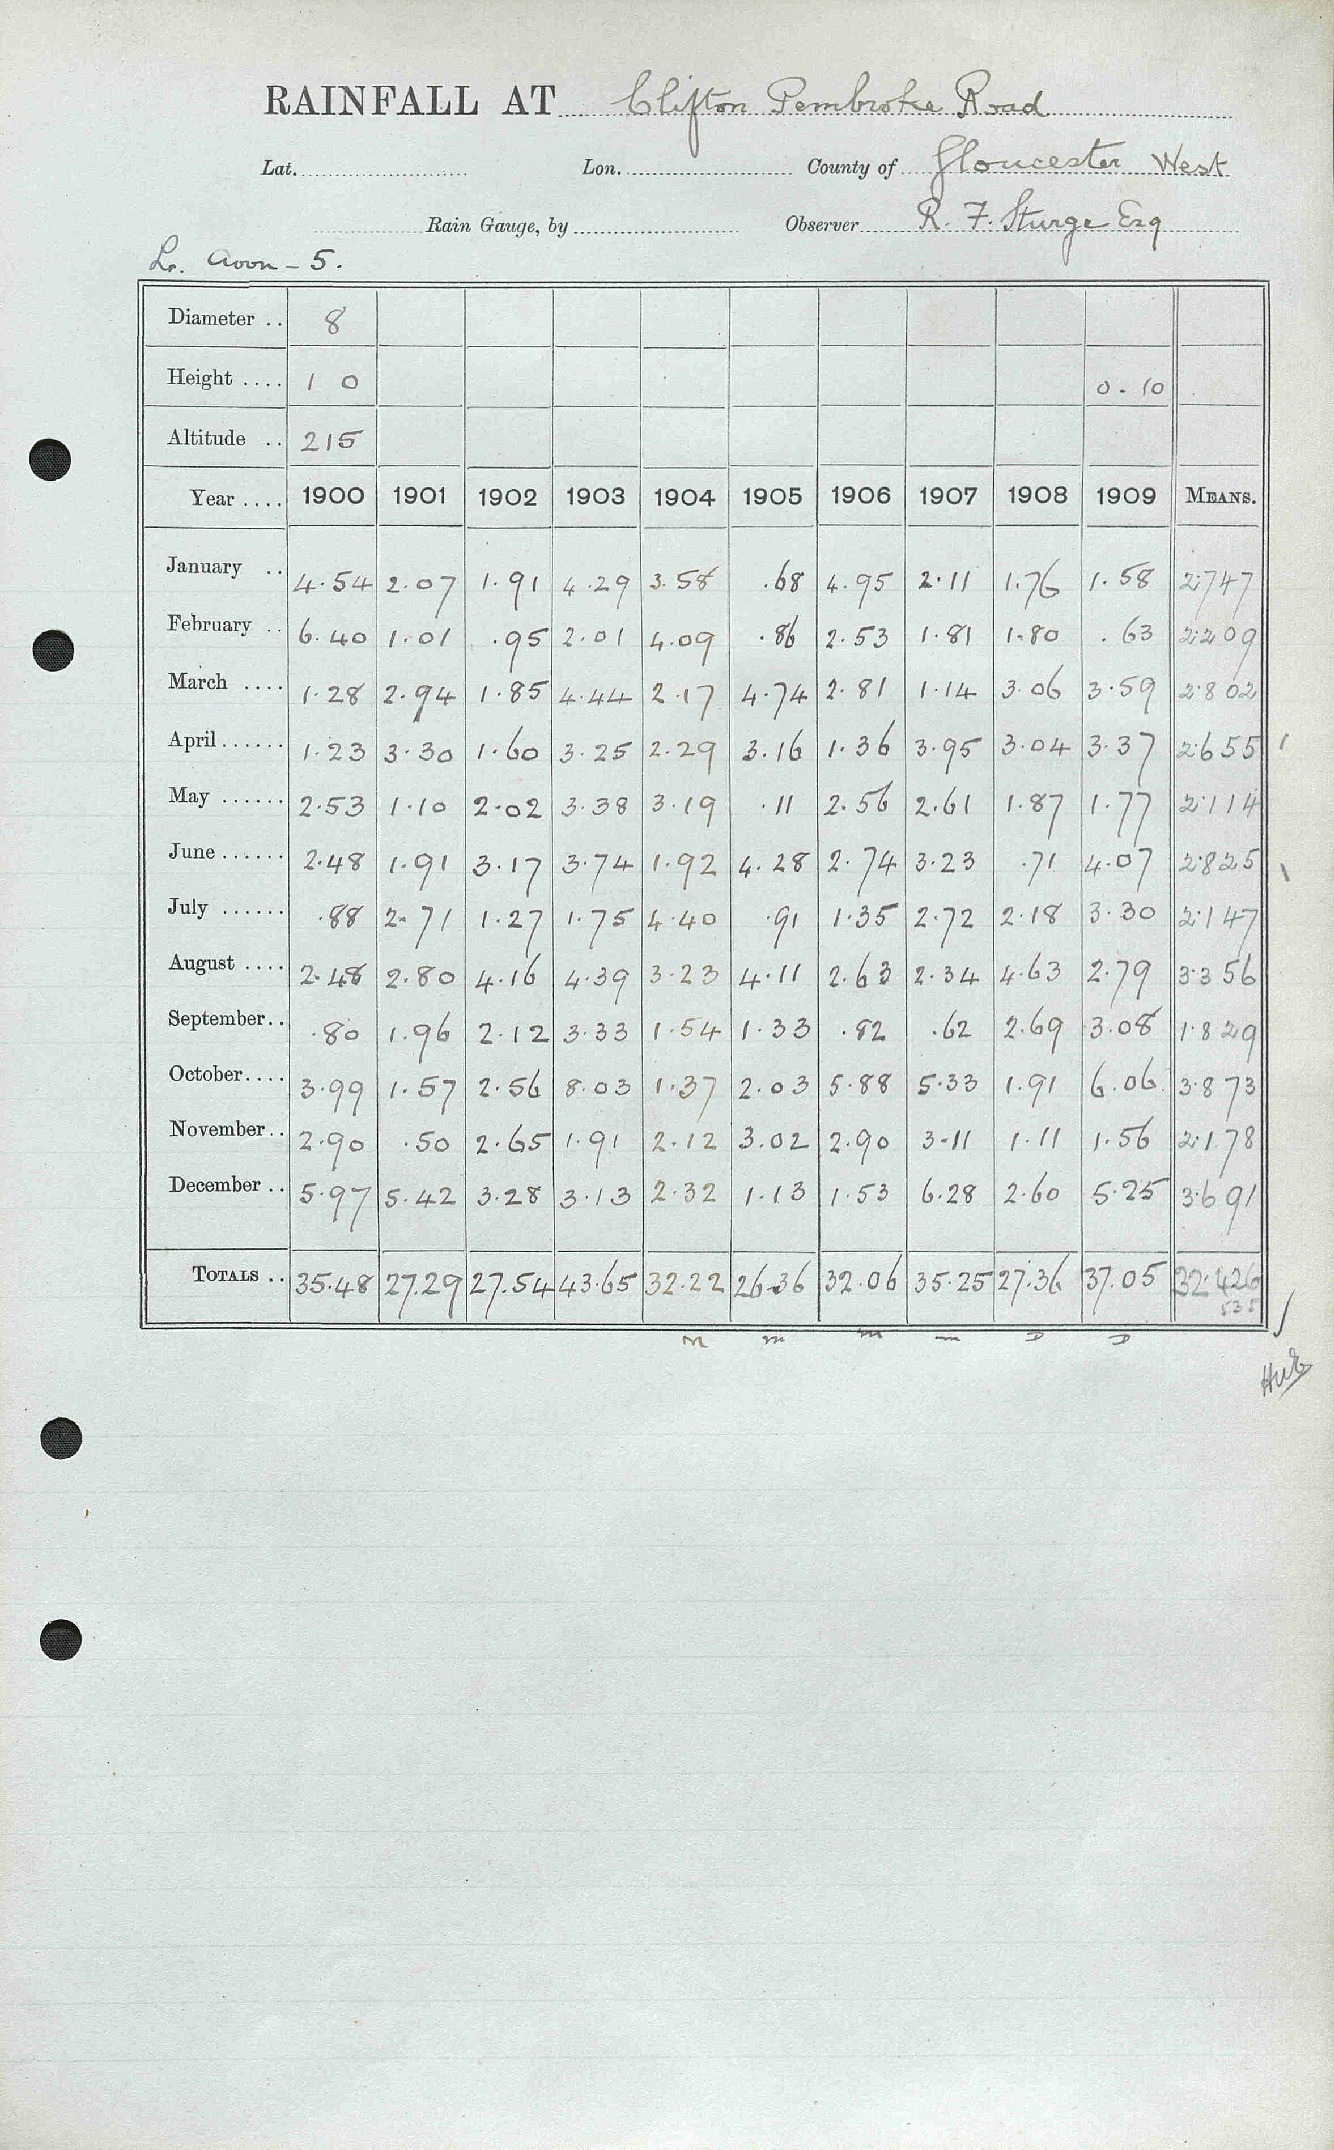 RAINFALL AT Clifton Pembroke Road
Lat. Lon. County of Gloucester West
Rain Gauge, by Observer R. F. Sturge Esq
Lr. Avon - 5.
Diameter .. 8
Height .... 1 0 0.10
Altitude .. 215
Year .... 1900 1901 1902 1903 1904 1905 1906 1907 1908 1909 MEANS.
January .. 4.54 2.07 1.91 4.29 3.58 .68 4.95 2.11 1.76 1.58 2.747
February .. 6.40 1.01 .95 2.01 4.09 .86 2.53 1.81 1.80 .63 2.209
March .... 1.28 2.94 1.85 4.44 2.17 4.74 2.81 1.14 3.06 3.59 2.802
April ...... 1.23 3.30 1.60 3.25 2.29 3.16 1.36 3.95 3.04 3.37 2.655
May ...... 2.53 1.10 2.02 3.38 3.19 .11 2.56 2.61 1.87 1.77 2.114
June ...... 2.48 1.91 3.17 3.74 1.92 4.28 2.74 3.23 .71 4.07 2.825
July ...... .88 2.71 1.27 1.75 4.40 .91 1.35 2.72 2.18 3.30 2.147
August .... 2.48 2.80 4.16 4.39 3.23 4.11 2.63 2.34 4.63 2.79 3.356
September.. .80 1.96 2.12 3.33 1.54 1.33 .82 .62 2.69 3.08 1.829
October.... 3.99 1.57 2.56 8.03 1.37 2.03 5.88 5.33 1.91 6.06 3.873
November.. 2.90 .50 2.65 1.91 2.12 3.02 2.90 3.11 1.11 1.56 2.178
December .. 5.97 5.42 3.28 3.13 2.32 1.13 1.53 6.28 2.60 5.25 3.691
TOTALS .. 35.48 27.29 27.54 43.65 32.22 26.36 32.06 35.25 27.36 37.05 32.426
535
M m m D D